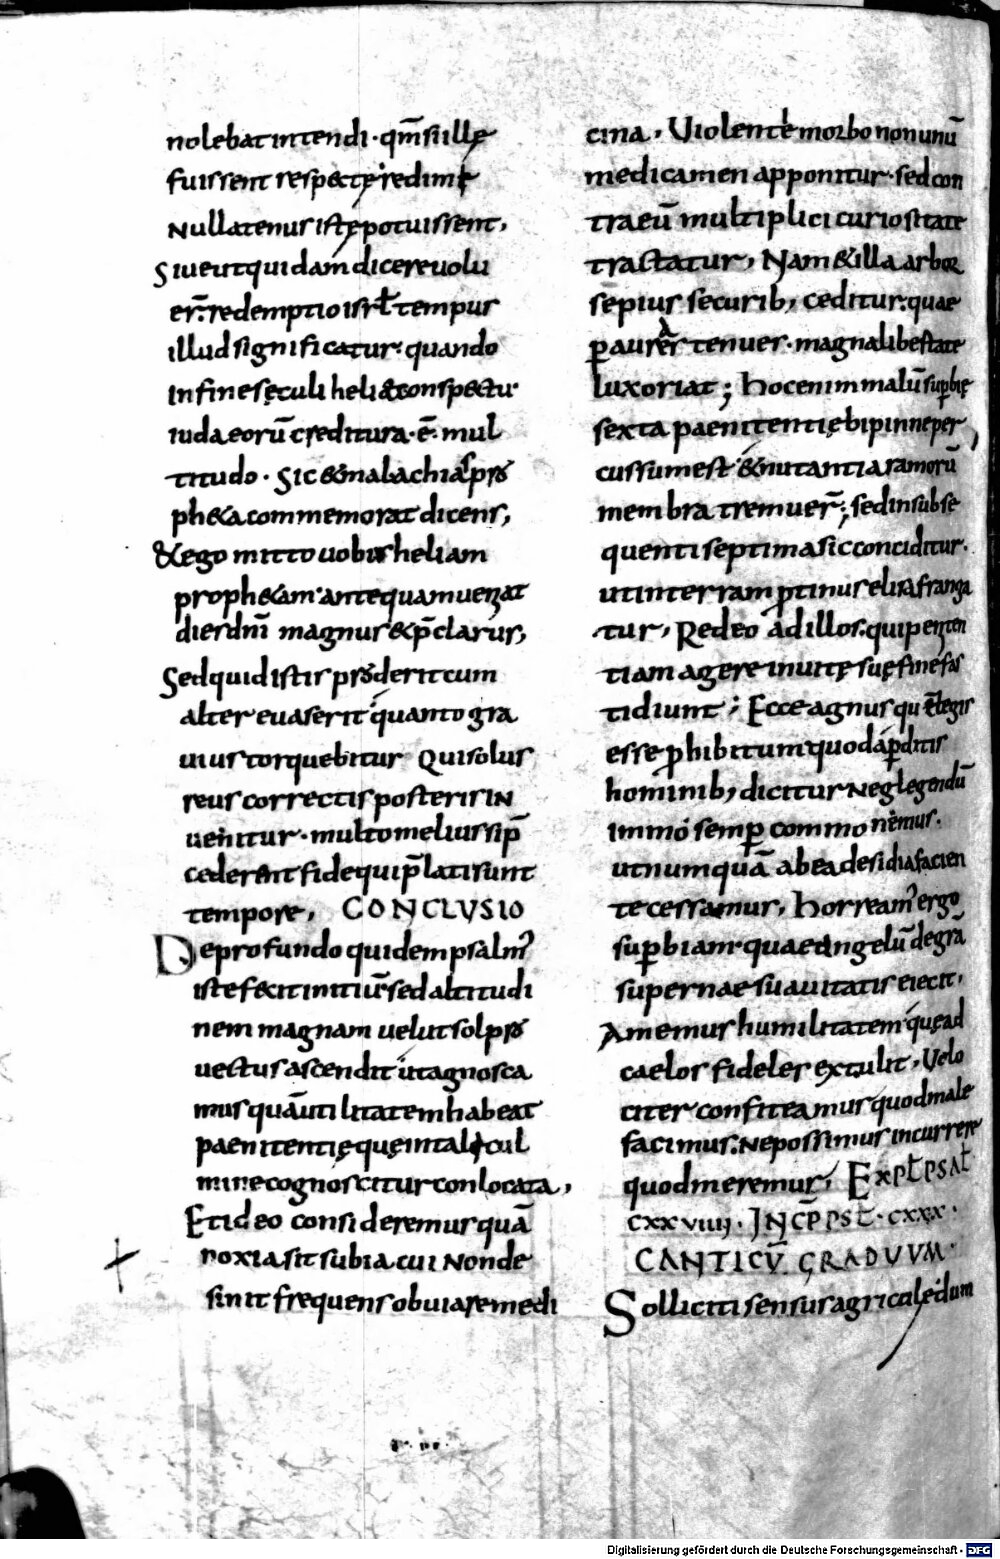 nolebat intendi · qm̄ si ille
fuissent respectę redimi
Nullatenus istę potuissent,
Siue ut quidam dicere uolu
er̄· redemptio isrl̄ tempus
illud significatur· quando
in fine sęculi heli & conspectu·
iuda eorū creditura · ē · mul
titudo · Sic & malachias pro
ph&a commemorat dicens,
& ego mitto uobis heliam
proph&am· antequam ueniat
dies dn̄i magnus & p̄clarus,
Sed quid istis proderit cum
alter euaserit· quanto gra
uius torquebitur Qui solus
reus correctis posteris IN
uenitur · multo melius si p̄
cederent fide qui p̄lati sunt
tempore, CONCLUSIO
De profundo quidem psalm'
iste fecit initiū· sed altitudi
nem magnam uelut sol pro
uectus ascendit· ut agnosca
mus quā utilitatem habeat
paenitentię quę in tali cul
mine cognoscitur conlocata,
Et ideo consideremus quā
noxia sit subia cui Nonde
sinit frequens obuiare medi
cina, Violente morbo non unū
medicamen apponitur· sed con
tra eū multiplici curiositate
tractatur, Nam & illa arbor
sepius securib, ceditur· quae
ꝑ aures tenues· magna libertate
luxoriat; hoc enim malū suꝑbię
sexta paenitentię bipinne per
cussum est· & nutantia ramorū
membra tremuer̄; sed in subse
quenti septima sic conciditur·
ut in terram ꝓtinus elisa franga
tur, Redeo ad illos· qui peniten
tiam agere in uitę suę fine fas
tidiunt; Ecce agnus qui elegis
esse ꝓhibitum quod a ꝑditis
hominib, dicitur Neglegendū
immo semꝑ commonemus·
ut numquā ab ea desidia facien
te cessamus, horream' ergo
suꝑbiam· quae angelū de gra
supernae suauitatis eiecit,
Amemus humilitatem· quę ad
caelos fideles extulit, Velo
citer confiteamur quod male
facimus· Ne possimus incurrere
quod meremur, EXPL̄ PSAL̄
CXXVIIIJ · INCP̄ PSL̄ · CXXX ·
CANTICŪ GRADUUM·
Solliciti sensus agricalędum
Digitalisierung gefördert durch die Deutsche Forschungsgemeinschaft - DFG